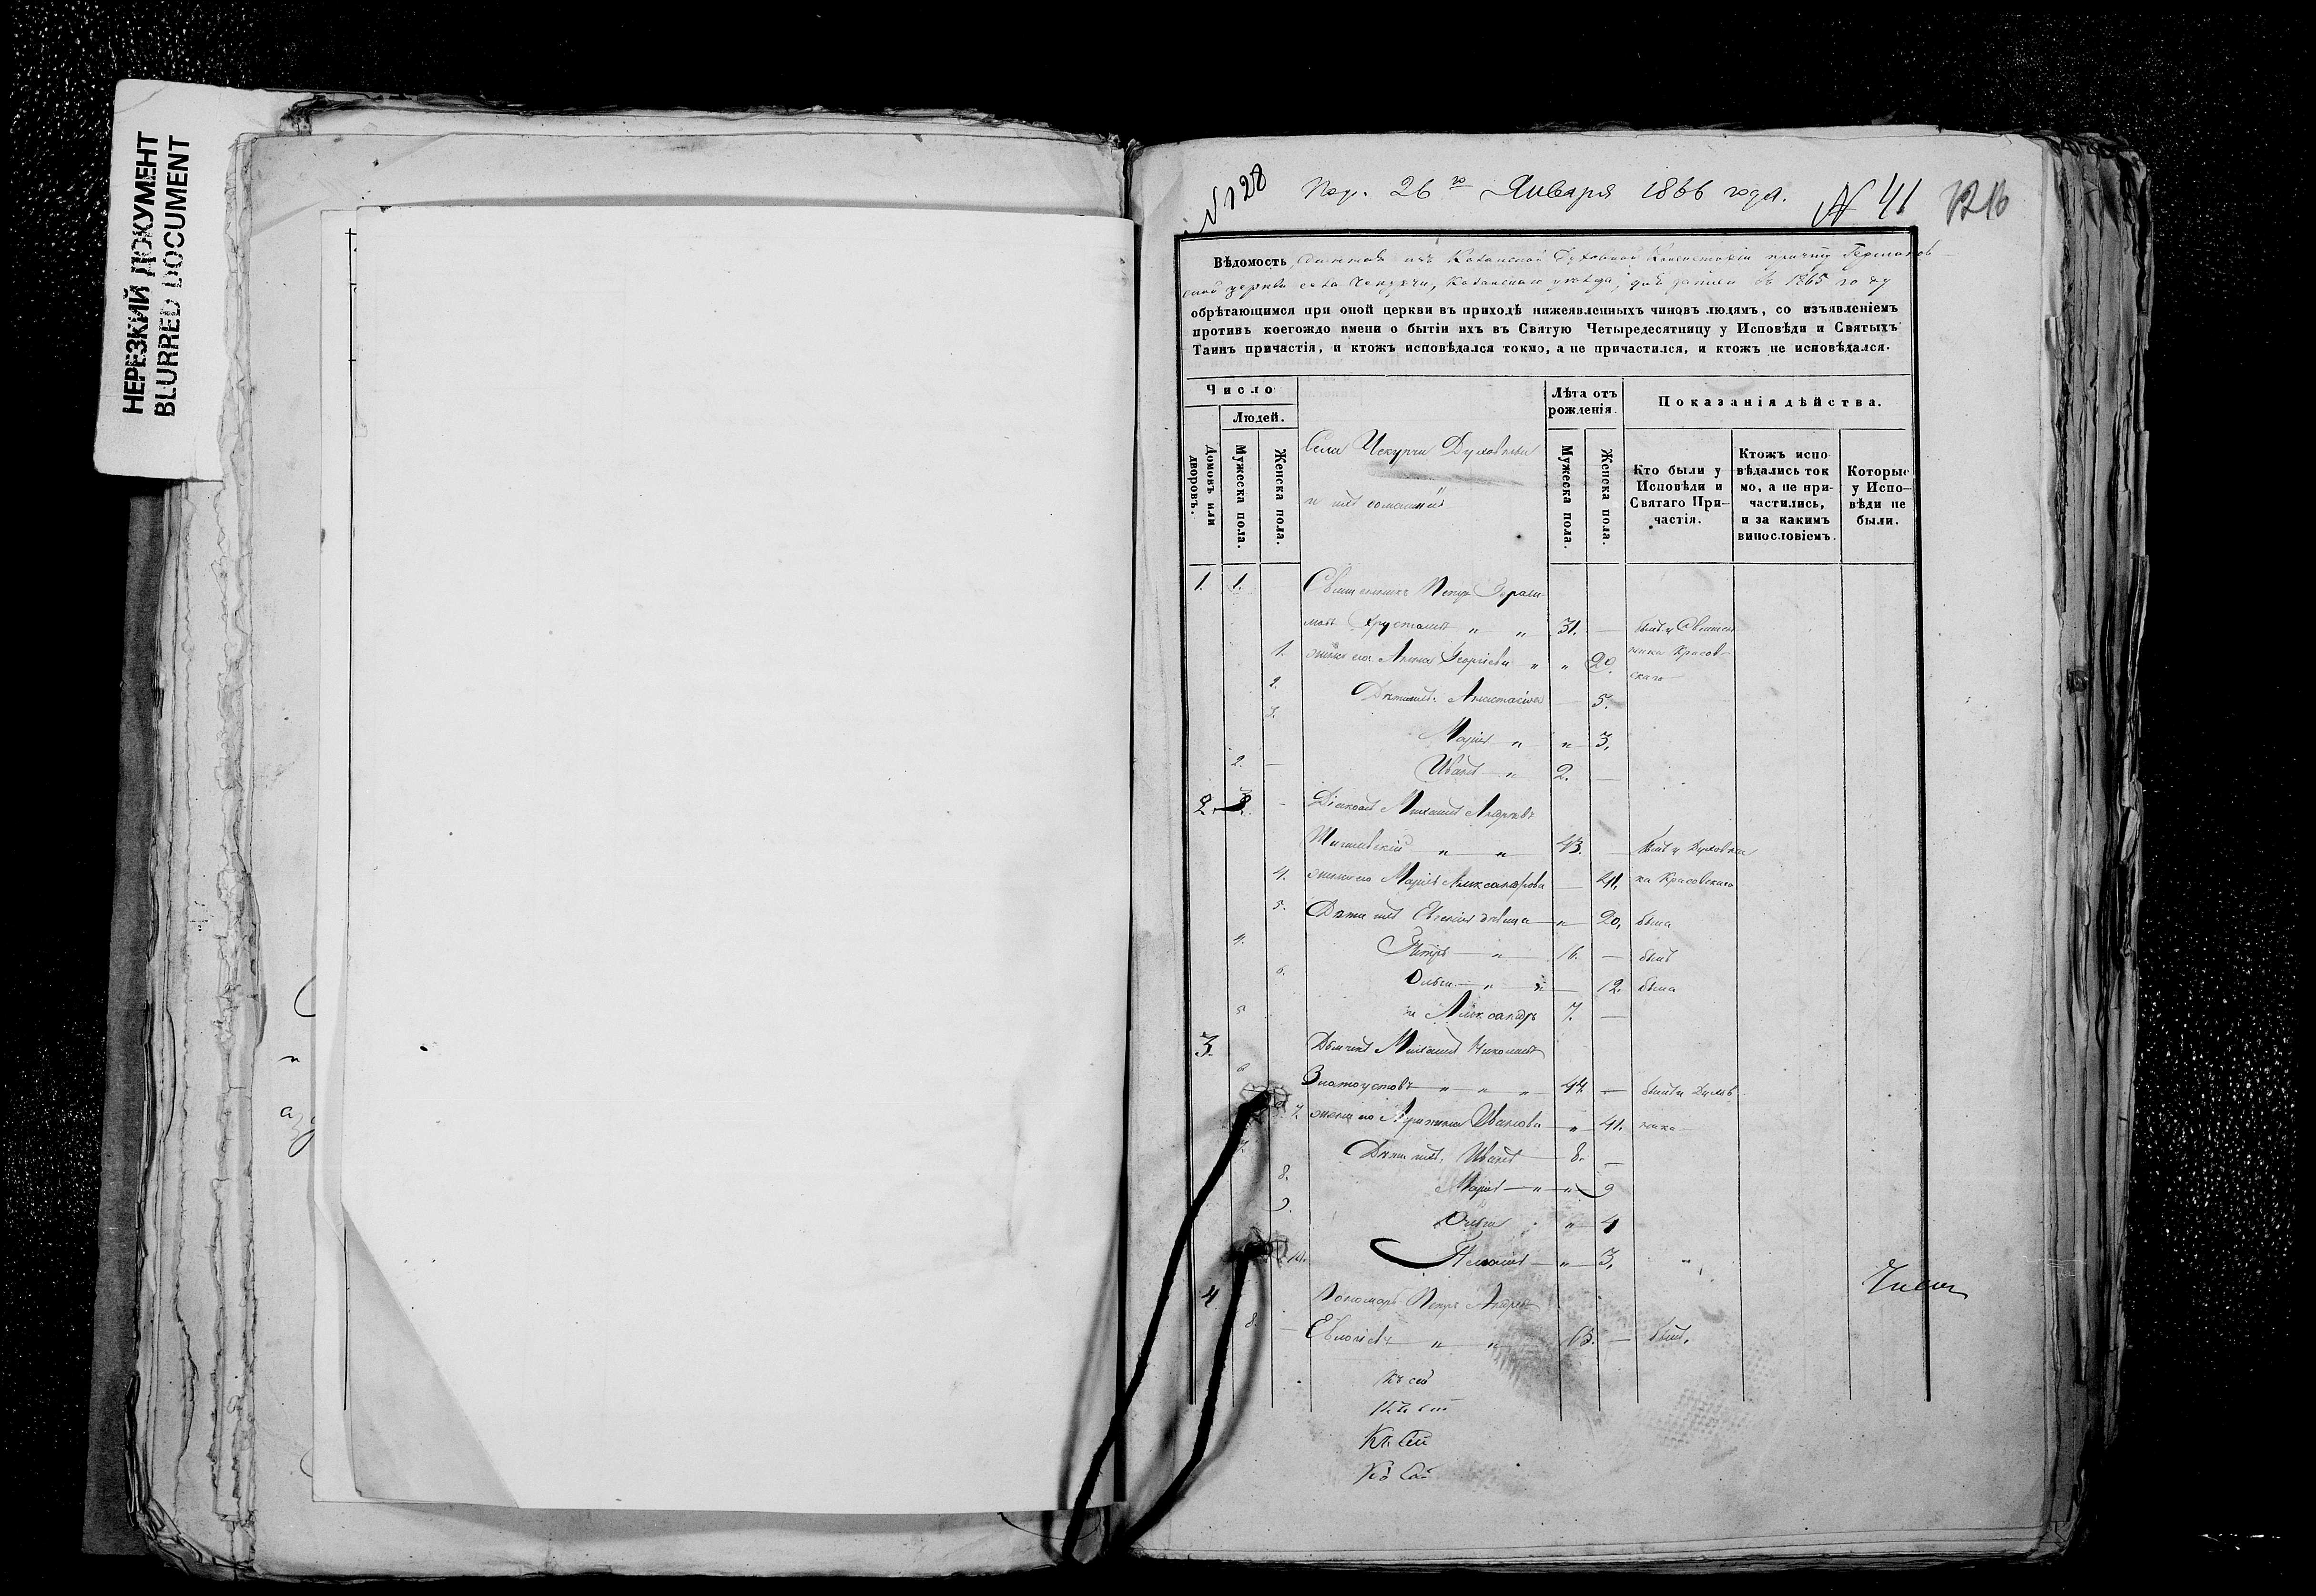 НЕРЕЗКИЙ ДОКУМЕНТ
BLURRED DOCUMENT
№ 128
26 го Января 1866 года.
№ 41
Вѣдомость данная изъ Казанской Духовной Консисторіи причту
церкви села Чекурчи, Казанскаго уѣзда, для записи въ 1865 году
обрѣтающимся при оной церкви въ приходѣ нижеявленныхъ чиновъ людямъ, со изъявленіемъ
противъ коегождо имени о бытіи ихъ въ Святую Четыредесятницу у Исповѣди и Святыхъ
Таинъ причастія, и ктожъ исповѣдался токмо, а не причастился, и ктожъ не исповѣдался.
Число
Людей.
Домовъ или дворовъ.
Мужеска пола.
Женска пола.
Села Чекурчи Духовные
и ихъ домашніе
Лѣта отъ рожденія.
Мужеска пола.
Женска пола.
Показанія дѣйства.
Кто были у Исповѣди и Святаго При-частія.
Ктожъ испо-вѣдались ток мо, а не при-частились, и за какимъ винословіемъ.
Которые у Испо-вѣди не были.
1. 1. Священникъ Петръ Гераси-
мовъ Хрусталевъ " " 31. — былъ у Священ
1. жена его Анна Георгіева " " 29. ника Красов-
скаго
2. Дѣти ихъ: Анастасія 5.
3. Марія " " 3.
2. — Иванъ — " 2. —
2. 3. - Діаконъ Михаилъ Андреевъ
" " 43. — былъ у Духовни
4. жена его Марія Александрова — 41. ка Красовскаго
5. Дѣти ихъ Евгенія дѣвица — " 20. была
4. Петръ — " 16. — былъ
6. Ольга — " — 12. была
5 и Александръ 7. —
3. Дьячекъ Михаилъ Николаевъ
6 Златоустовъ " " " 44. — былъ у Духов
7. жена его Агрипина Иванова — " 41. ника
7. Дѣти ихъ: Иванъ 8. —
8. Марія — " — " — 9
9. Ольга " 4
10. — " — 3.
4 Пономарь Петръ Андреевъ
8. — Евлогіевъ " " — былъ.